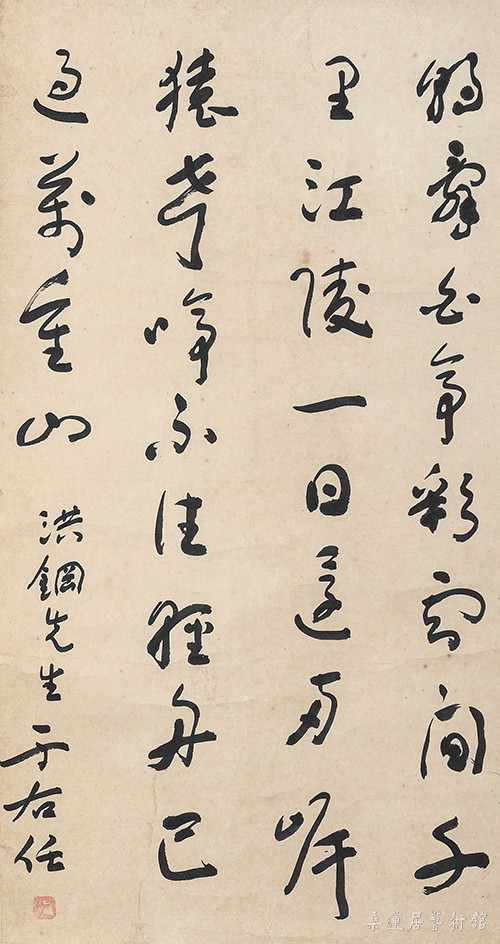 朝辭白帝彩雲間千
里江陵一日還兩岸
猿聲啼不住輕舟已
過萬重山
洪鋼先生
于右任
桑蓮居藝術館